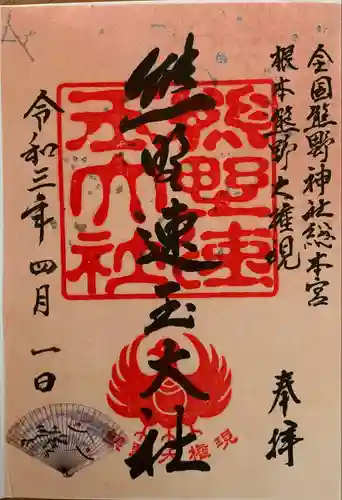 全国熊野神社総本宮
根本熊野大権現
奉拝
熊野速玉大社
熊野速
玉大社
令和三年四月一日